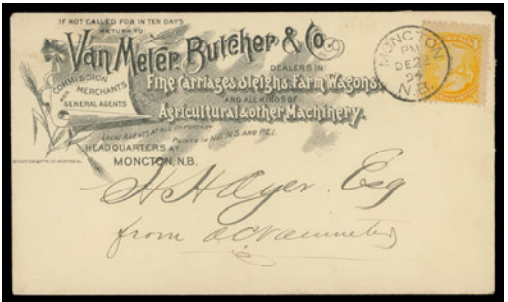 IF NOT CALLED FOR IN TEN DAYS
RETURN TO
Van Meter, Butcher & Co.
DEALERS IN
COMMISSION
MERCHANTS
AND
GENERAL AGENTS
Fine Carriages, Sleighs, Farm Wagons,
AND ALL KINDS OF
Agricultural & other Machinery.
LOCAL AGENTS AT ALL IMPORTANT
POINTS IN N.B. N.S. AND P.E.I.
HEADQUARTERS AT
MONCTON, N.B.
MONCTON
PM
DE 22
92
N.B.
H H Ayer. Esq
from